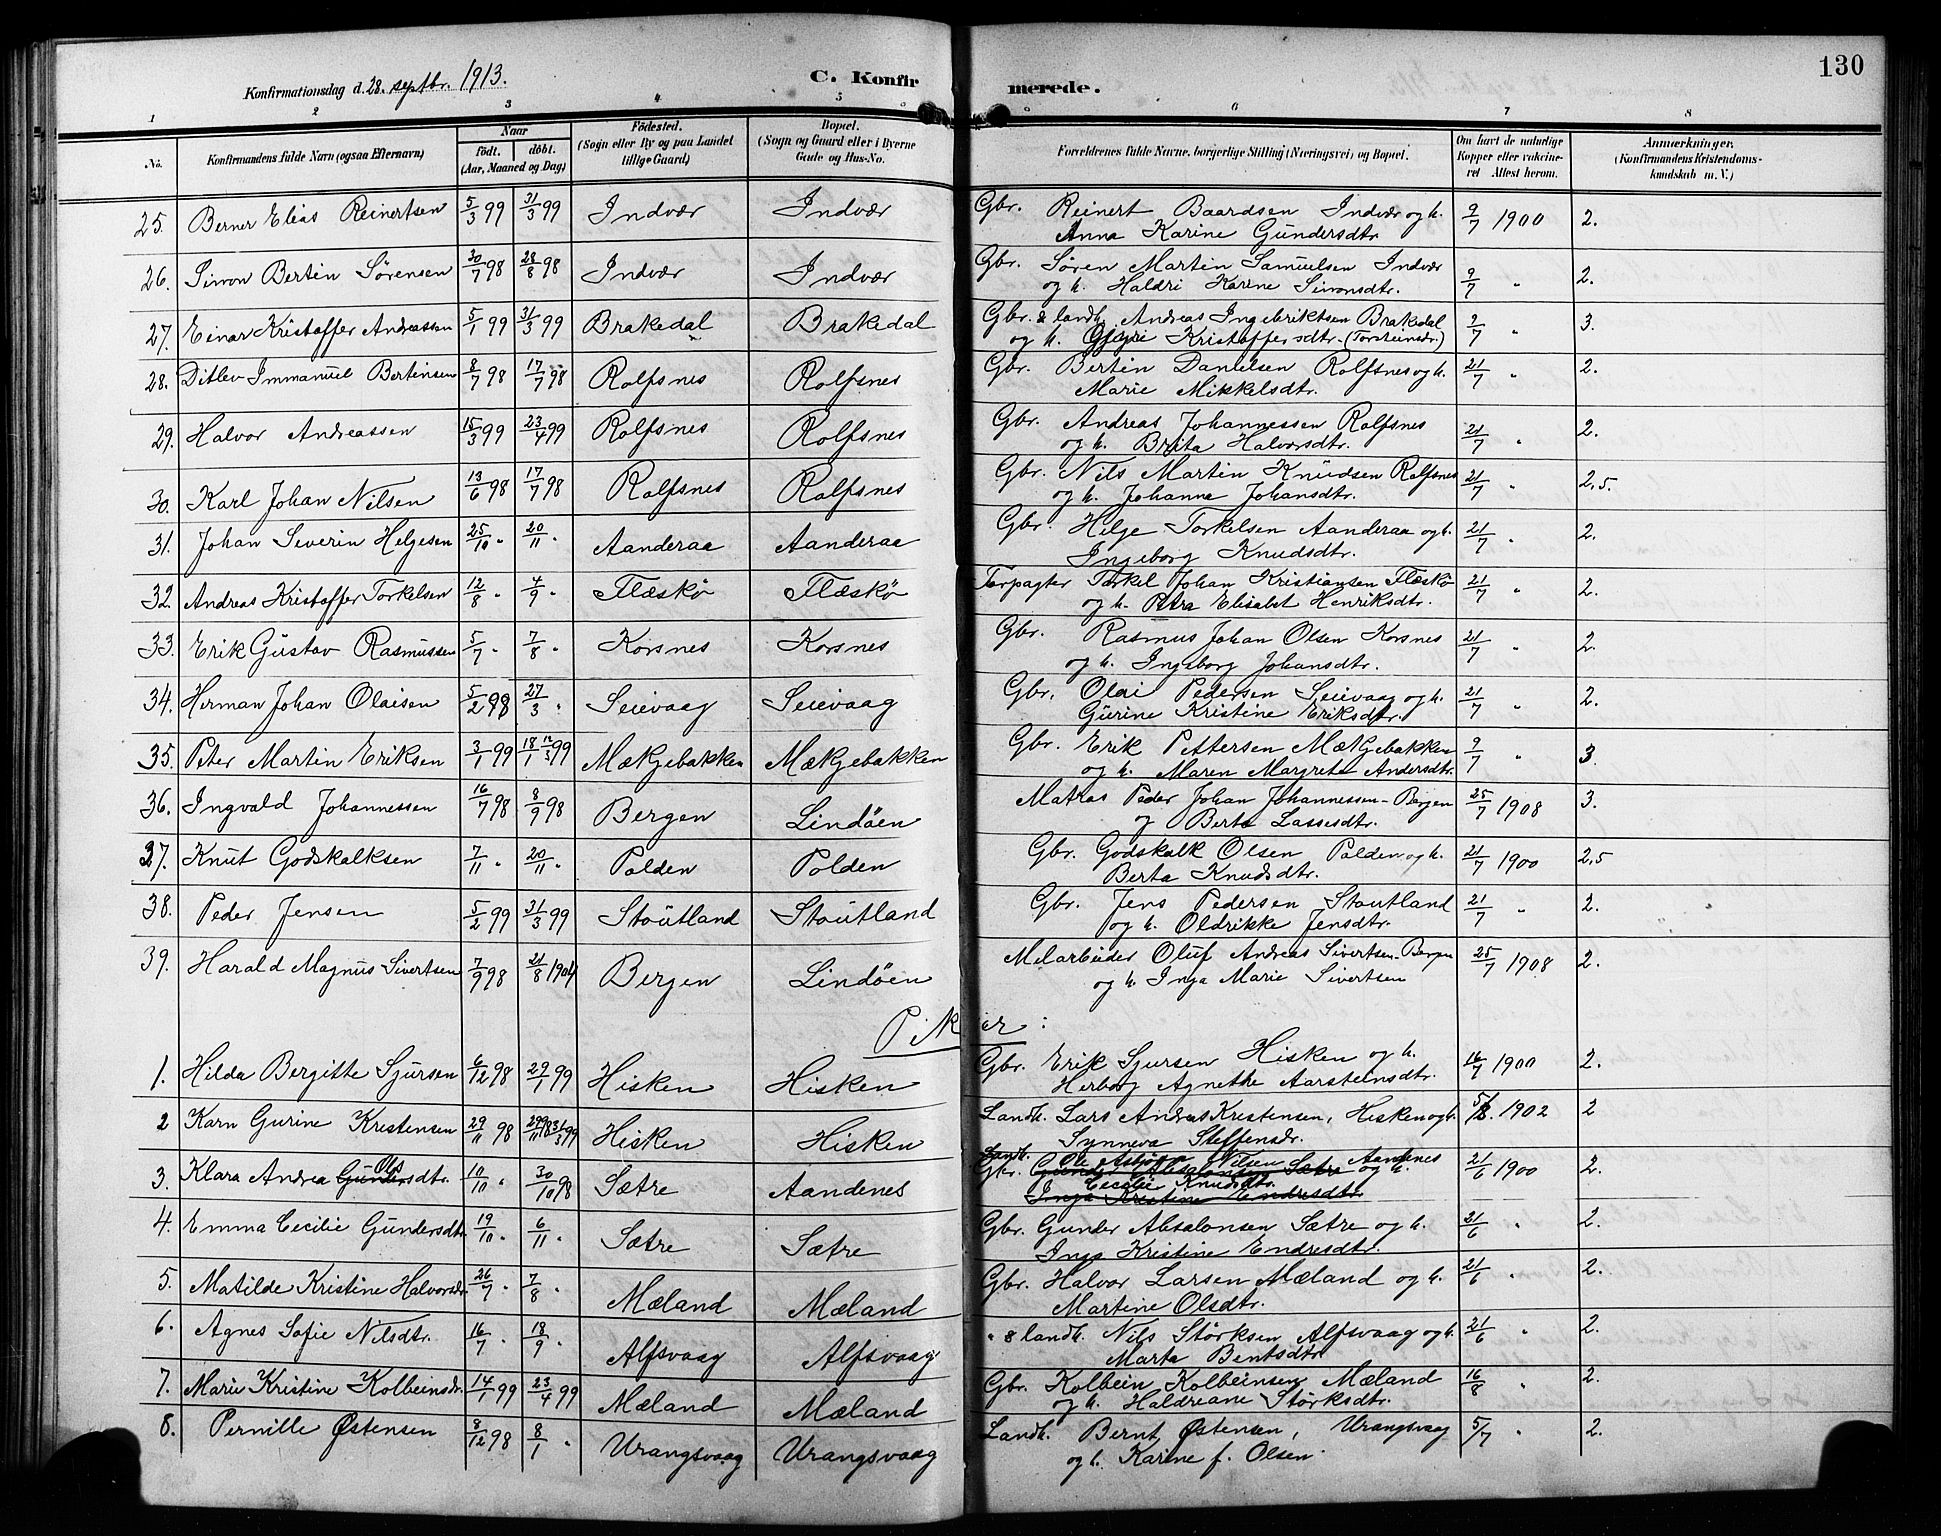 130
Konfirmationsdag d. 28. septbr. 1913. C. Konfirmerede.
1 2 3 4 5 6 7 8
No. Konfirmandens fulde Navn (ogsaa Efternavn) Naar født. døbt. (Aar, Maaned og Dag) Fødested. (Sogn eller By og paa Landet tillige Gaard) Bopæl. (Sogn og Gaard eller i Byerne Gade og Hus-No. Forældrenes fulde Navne, borgerlige Stilling (Næringsvei) og Bopæl. Om havt de naturlige Kopper eller vaccineret Attest herom. Anmærkninger. (Konfirmandens Kristendomskundskab m. V.)
25. Berner Elias Reinertsen 5/3 99 31/3 99 Indvær Indvær Gbr. Reinert Baardsen Indvær og h. 9/7 1900 2.
Anna Karine Gundersdtr.
26. Simon Bertin Sørensen 30/7 98 28/8 98 Indvær Indvær Gbr. Søren Martin Samuelsen Indvær 9/7 " 2.
og h. Haldri Karine Simonsdtr.
27. Einar Kristoffer Andreassen 5/1 99 31/3 99 Brakedal Brakedal Gbr. & landh. Andreas Ingebriktsen Brakedal 9/7 " 3.
og h. Gjøri Kristoffersdtr. (Torsteinsdr.)
28. Ditlev Immanuel Bertinsen 8/7 98 17/7 98 Rolfsnes Rolfsnes Gbr. Bertin Danielsen Rolfsnes og h. 21/7 " 2.
Marie Mikkelsdtr.
29. Halvor Andreassen 15/3 99 23/4 99 Rolfsnes Rolfsnes Gbr. Andreas Johannessen Rolfsnes 21/7 " 2.
og h. Brita Halvorsdtr.
30. Karl Johan Nilsen 13/6 98 17/7 98 Rolfsnes Rolfsnes Gbr. Nils Martin Knudsen Rolfsnes 21/7 " 2,5.
og h. Johanna Johansdtr.
31. Johan Severin Helgesen 25/10 " 20/11 " Aanderaa Aanderaa Gbr. Helge Torkelsen Aanderaa og h. 21/7 " 2.
Ingeborg Knudsdtr.
32. Andreas Kristoffer Torkelsen 12/8 " 4/9 " Flæskø Flæskø Forpagter Torkel Johan Kristiansen Flæskø 21/7 " 2.
og h. Petra Elisabet Henriksdtr.
33. Erik Gustav Rasmussen 5/7 " 7/8 " Korsnes Korsnes Gbr. Rasmus Johan Olsen Korsnes 21/7 " 2.
og h. Ingeborg Johansdtr.
34. Herman Johan Olaisen 5/2 98 27/3 " Seievaag Seievaag Gbr. Olai Pedersen Seievaag og h. 21/7 " 2.
Gurine Kristine Eriksdtr.
35. Peter Martin Eriksen 3/1 99 18/1 12/3 99 Mækjebakken Mækjebakken Gbr. Erik Pettersen Mækjebakken 9/7 " 3.
og h. Maren Margrete Andersdtr.
36. Ingvald Johannessen 16/7 98 8/9 98 Bergen Lindøen Matros Peder Johan Johannessen - Bergen 25/7 1908 3.
og Berta Lassesdtr.
37. Knut Godskalksen 7/11 " 20/11 " Polden Polden Gbr. Godskalk Olsen Polden og h. 21/7 1900 2,5
Berta Knudsdtr.
38. Peder Jensen 5/2 99 31/3 99 Stoutland Stoutland Gbr. Jens Pedersen Stoutland 21/7 " 2.
og h. Oldrikke Jensdtr.
39. Harald Magnus Sivertsen 7/9 98 21/8 1904 Bergen Lindøen Melarbeider Oluf Andreas Sivertsen - Bergen 25/7 1908 2.
og h. Inga Marie Sivertsen
Piker:
1. Hilda Bergitte Sjursen 6/12 98 29/1 99 Hisken Hisken Gbr. Erik Sjursen Hisken og h. 16/7 1900 2.
Herborg Agnethe Aarsteinsdtr.
2 Karn Gurine Kristensen 29/11 98 29/11 98 31/3 99 Hisken Hisken Landh. Lars Andreas Kristensen, Hisken og h. 5/8. 1902 2
Synneva Steffensdr.
3. Klara Andrea Gundersdtr. Ols 10/10 " 30/10 98 Sætre Aandenes Landh. Ole Asbjørn Nilsen Aandenes 21/6 1900 2.
Gbr. Gunder Absalonsen Sætre og h.
Cecilie Knudsdtr.
Inga Kristine Endresdtr.
4. Emma Cecilie Gundersdtr. 19/10 " 6/11 " Sætre Sætre Gbr. Gunder Absalonsen Sætre og h. 21/6 " 2.
Inga Kristine Endresdtr.
5. Matilde Kristine Halvorsdr. 26/7 " 7/8 " Mæland Mæland Gbr. Halvor Larsen Mæland og h. 21/6 " 2.
Martine Olsdtr.
6. Agnes Sofie Nilsdtr. 16/7 " 18/9 " Alfsvaag Alfsvaag " & landh. Nils Størksen Alfsvaag og h. 21/6 " 2.
Marta Bentsdtr.
7. Marie Kristine Kolbeinsdr. 14/1 99 23/4 99 Mæland Mæland Gbr. Kolbein Kolbeinsen Mæland 16/8 " 2.
og h. Haldriane Størksdtr.
8. Pernille Østensen 8/12 98 8/1 " Urangsvaag Urangsvaag Landh. Bernt Østensen, Urangsvaag 5/7 " 2.
og h. Karine f. Olsen.